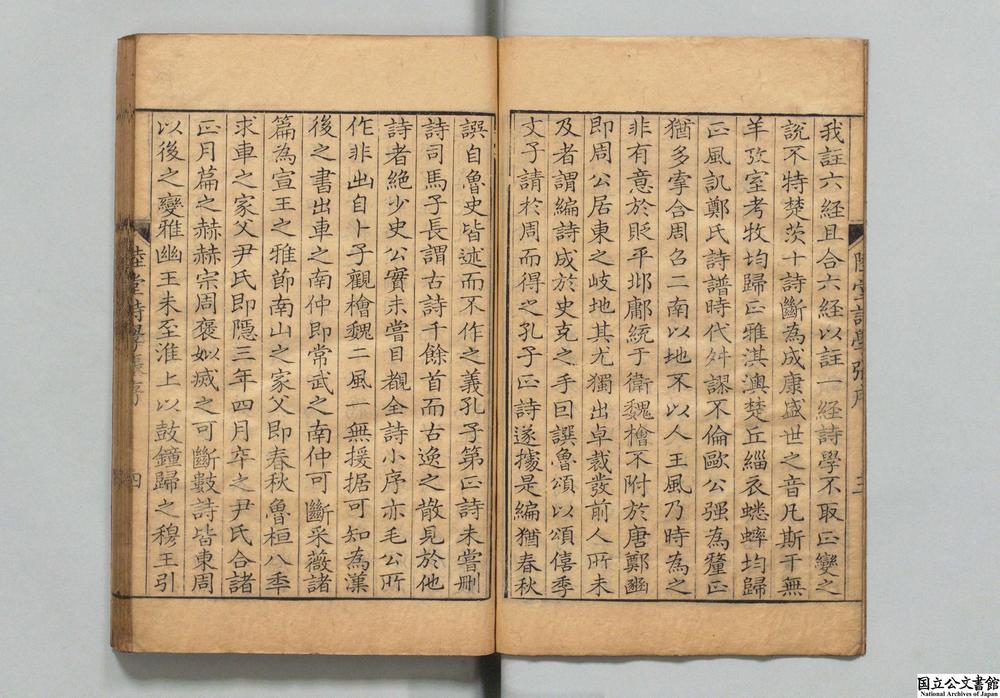 我註六経且合六経以註一経詩學不取正變之
說不特楚茨十詩斷為成康盛世之音凡斯干無
羊攷室考牧均歸正雅淇澳楚丘緇衣蟋蟀均歸
正風訊鄭氏詩譜時代舛謬不倫歐公强為釐正
猶多牽合周召二南以地不以人王風乃時為之
非有意於貶平邶鄘統于衛魏檜不附於唐鄭豳
即周公居東之岐地其尤獨出卓裁發前人所未
及者謂編詩成於史克之手曰譔魯頌以頌僖季
文子請於周而得之孔子正詩遂據是編猶春秋
陸堂詩學張序 三
譔自魯史皆述而不作之義孔子第正詩未嘗刪
詩司馬子長謂古詩千餘首而古逸之散見於他
詩者絶少史公實未嘗目覩全詩小序亦毛公所
作非出自卜子觀檜魏二風一無援据可知為漢
後之書出車之南仲即常武之南仲可斷采薇諸
篇為宣王之雅節南山之家父即春秋魯桓八年
求車之家父尹氏即隱三年四月卒之尹氏合諸
正月篇之赫赫宗周褒姒烕之可斷數詩皆東周
以後之變雅幽王未至淮上以鼓鐘歸之穆王引
陸堂詩學張序 四
国立公文書館
National Archives of Japan